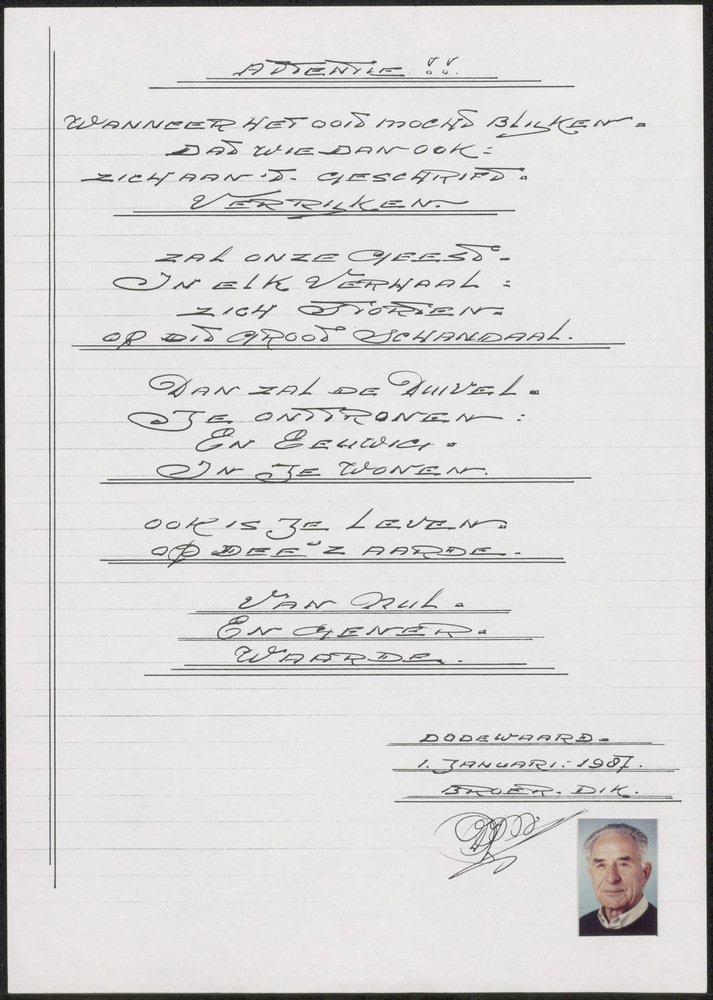 ATTENTIE !!
WANNEER HET OOIT MOCHT BLIJKEN.
DAT WIE DAN OOK:
ZICH AAN 'T. GESCHRIFT.
VERRIJKEN.
ZAL ONZE GEEST.
IN ELK VERHAAL:
ZICH STORTEN.
OP DIT GROOT SCHANDAAL.
DAN ZAL DE DUIVEL.
JE ONTTRONEN:
EN EEUWIG.
IN JE WONEN.
OOK IS JE LEVEN.
OP DEE'Z AARDE.
VAN NUL.
EN GENER.
WAARDE.
DODEWAARD.
1. JANUARI:-1987.
BROER. DIK.